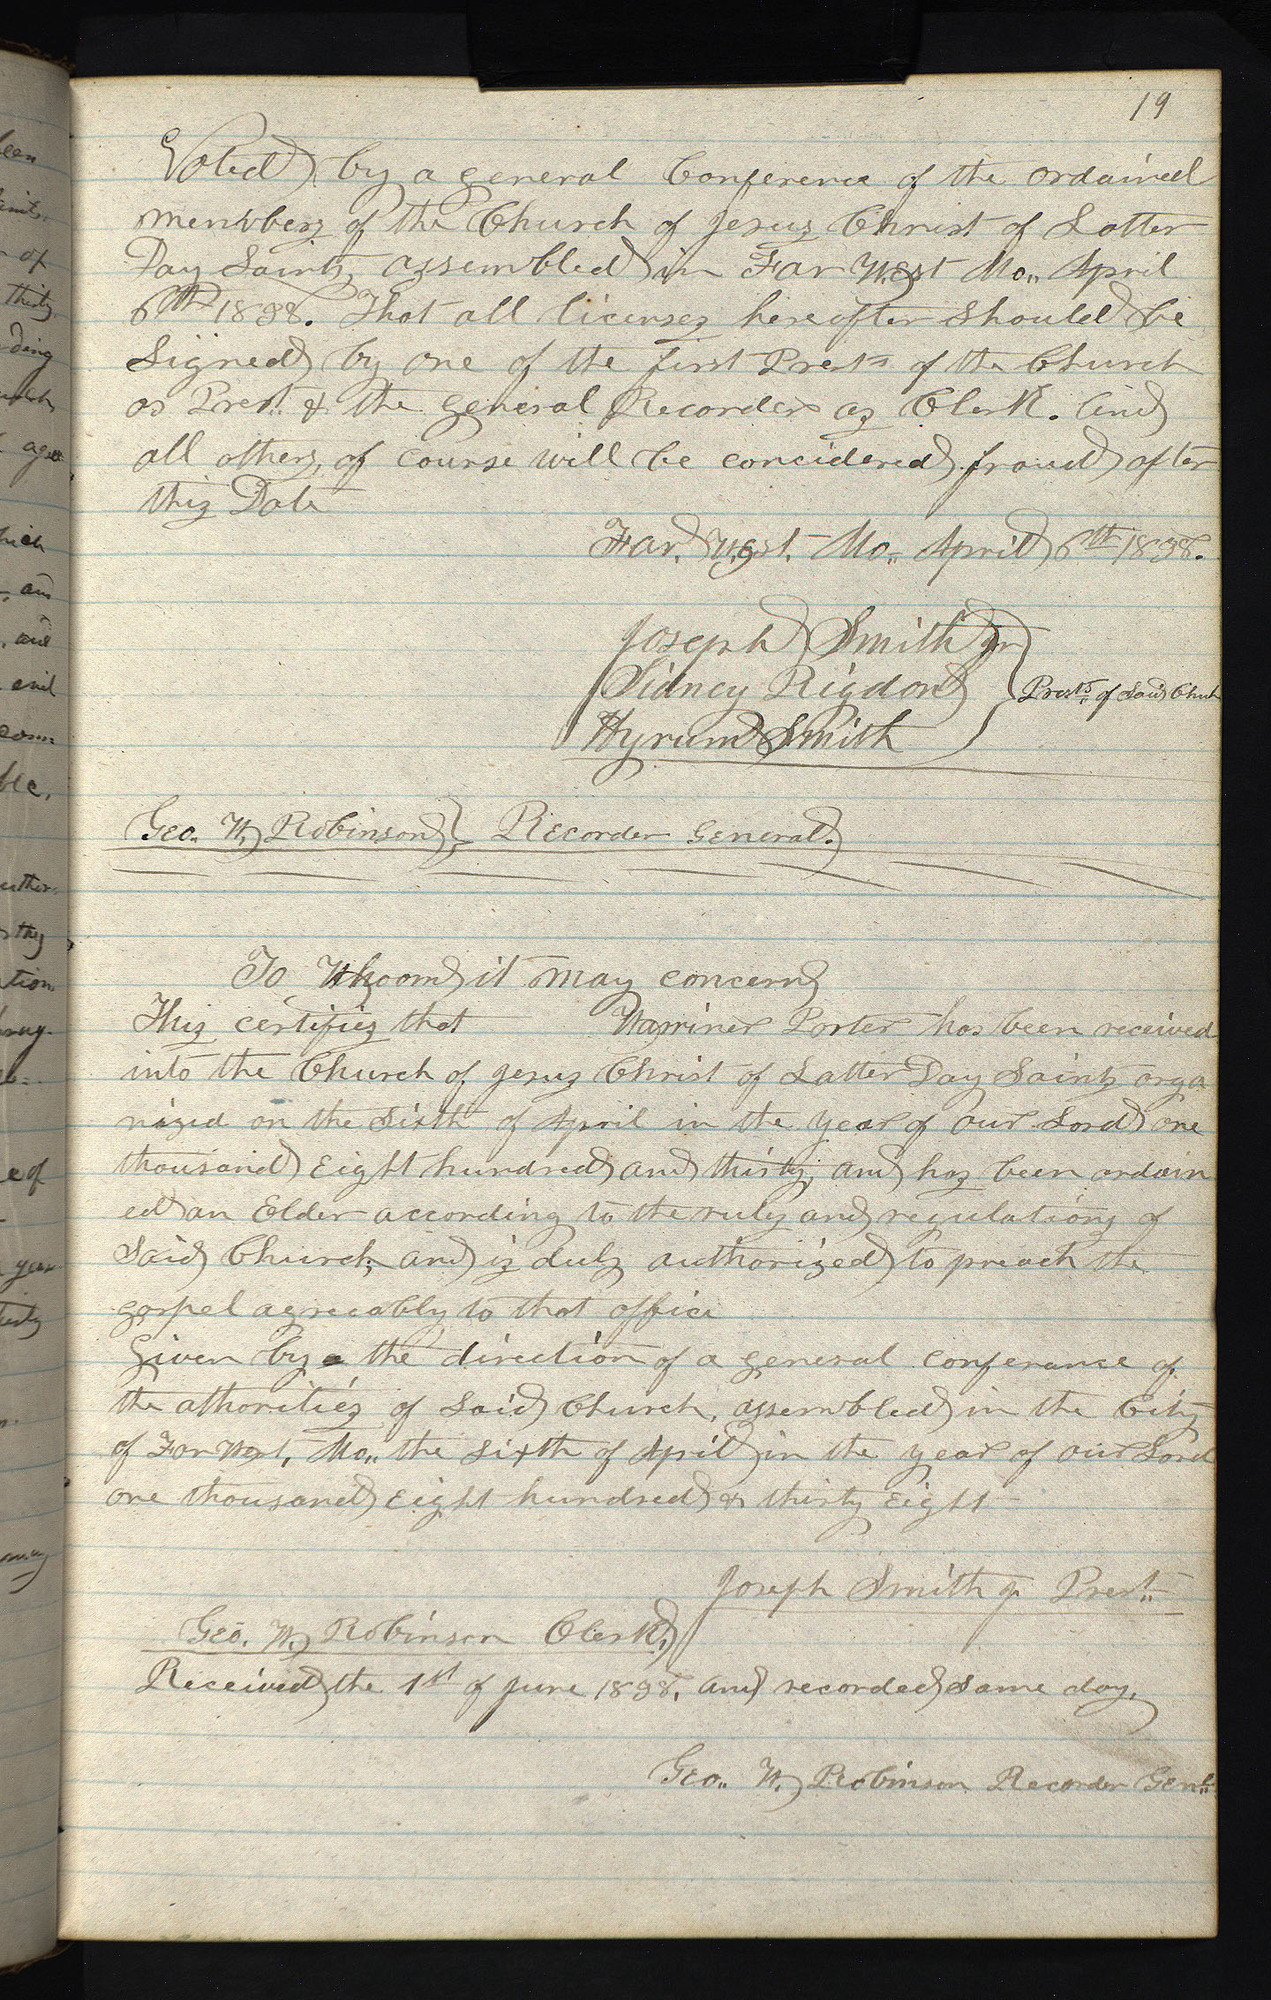 19
Voted by a general Conference of the ordained
members of the Church of Jesus Christ of Latter
Day Saints, assembled in Far West Mo,, April
6th 1838. That all licenses hereafter should be
Signed by one of the first Prests of the Church
as Prest. & the general Recorder as Clerk. And
all others, of course will be concidered fraud after
this Date
Far, West, Mo,, April 6th 1838.
Joseph Smith Jr
Sidney Rigdon
Hyrum Smith
Prests. of Said Chuch
Geo. W. Robinson } Recorder General.
To Whoom it may concern
This certifies that Warriner Porter has been received
into the Church of Jesus Christ of Latter Day Saints orga
nized on the sixth of April in the year of our Lord one
thousand Eight hundred and thirty, and has been ordain
ed an Elder according to the ruls and regulations of
Said Church, and is duly authorized to preach the
gospel agreeably to that office
Given by the direction of a general conferance of
the athorities of Said Church, assembled in the City
of Far West, Mo,, the sixth of April in the year of our Lord
one thousand Eight hundred & thirty Eight
Joseph Smith Jr Prest.
Geo. W. Robinson Clerk,
Received the 1st of June 1838, and recorded same day,
Geo,, W. Robinson Recorder Genl.